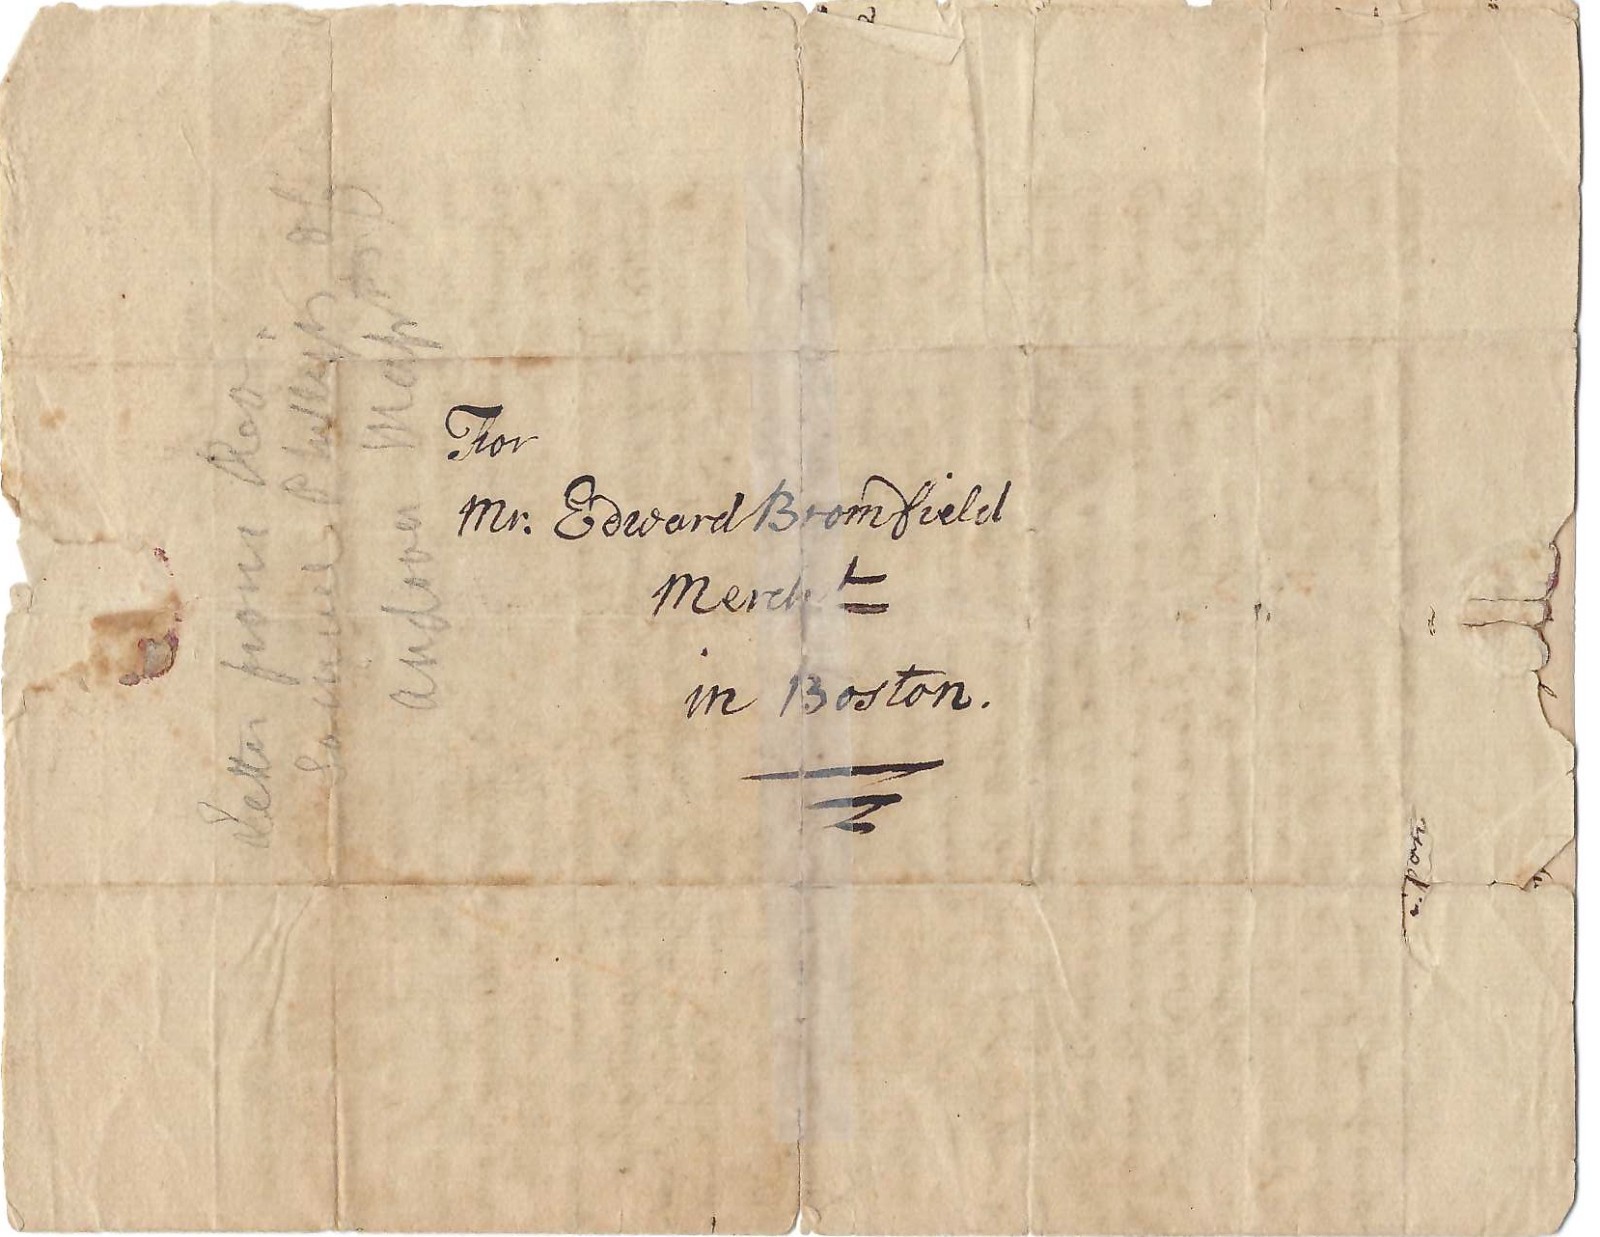 For
Mr. Edward Bromfield
Mercht
in Boston.
Letter from Rev.
Samuel Phillips of
Andover Mass